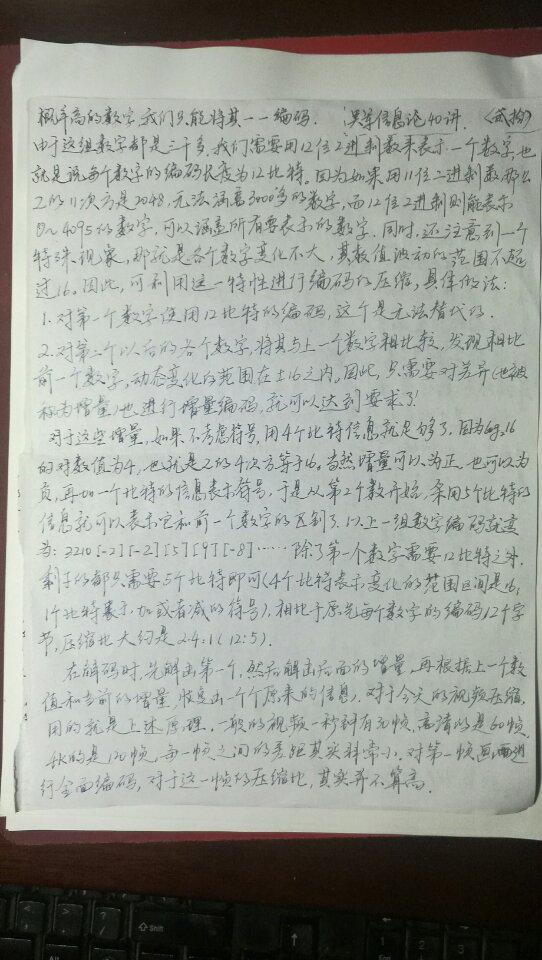 概率高的数字,我们只能将其一一编码. 吴军信息论40讲. (试抄)
由于这组数字都是三千多,我们需要用12位2进制数来表示一个数字,也
就是说每个数字的编码长度为12比特。因为如果用11位二进制数那么
2的11次方是2048,无法涵盖3000多的数字,而12位2进制则能表示
0~4095的数字,可以涵盖所有要表示的数字.同时,还注意到一个
特殊现象,那就是各个数字变化不大,其数值波动的范围不超
过16。因此,可利用这一特性进行编码的压缩,具体做法:
1.对第一个数字使用12比特的编码,这个是无法替代的.
2.对第二个以后的各个数字,将其与上一个数字相比较,发现相比
前一个数字,动态变化的范围在±16之内。因此,只需要对差异(也被
称为增量)也进行增量编码,就可以达到要求了!
对于这些增量,如果不考虑符号,用4个比特信息就足够了,因为log16
的对数值为4,也就是2的4次方等于16。当然增量可以为正,也可以为
负,再加一个比特的信息表示符号,于是从第2个数开始,条用5个比特的
信息就可以表示它和前一个数字的区别了.以上一组数字编码就变
为:3210[-2][-2][5][9][-8]……除了第一个数字需要12比特之外,
剩下的都只需要5个比特即可(4个比特表示变化的范围区间是16;
1个比特表示加或者减的符号),相比于原先每个数字的编码12个字
节,压缩比大约是2.4:1(12:5).
在解码时,先解出第一个,然后解出后面的增量,再根据上一个数
值和当前的增量,恢复出一个个原来的信息。对于今天的视频压缩,
用的就是上述原理。一般的视频一秒钟有30帧,高清的是60帧,
4K的是120帧,每一帧之间的差距其实非常小.对第一帧画面进
行全面编码,对于这一帧的压缩比,其实并不算高.
Shift
1
2
3
4
5
6